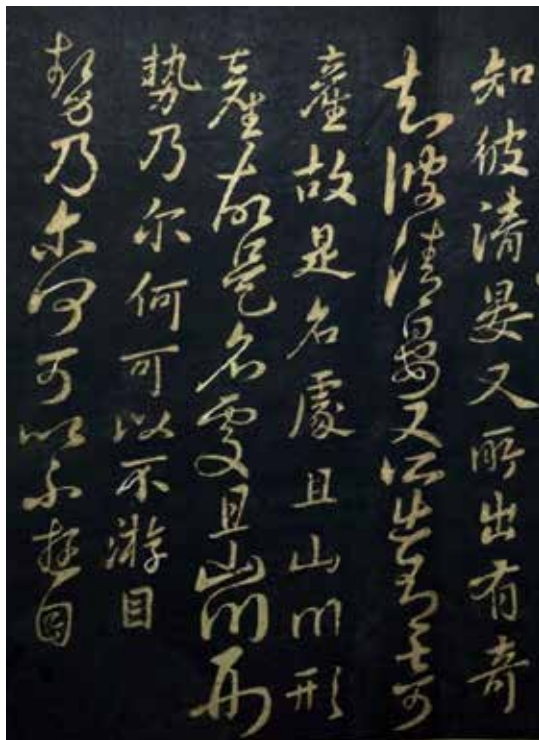 知彼清晏又所出有奇
知彼清晏又所出有奇
產故是名處且山川形
產故是名處且山川形
勢乃尔何可以不游目
勢乃尔何可以不游目